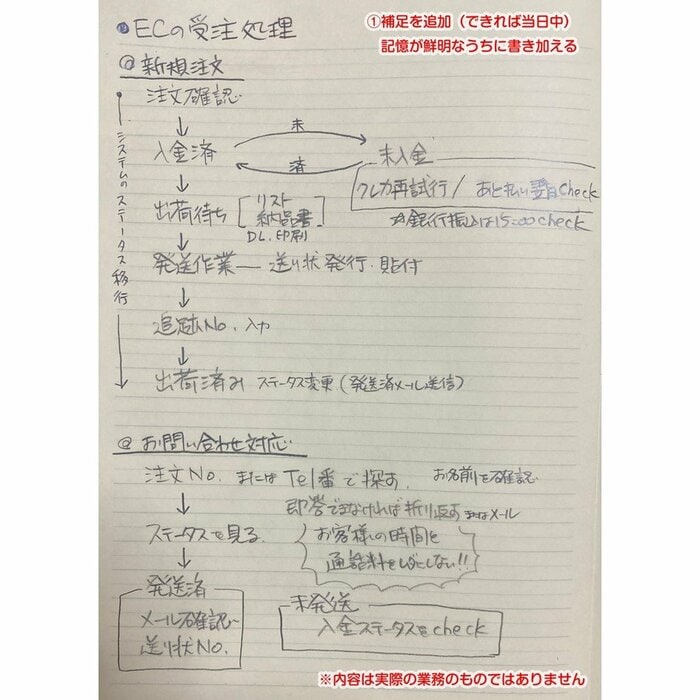 ①補足を追加（できれば当日中）
記憶が鮮明なうちに書き加える
●ECの受注処理
◎新規注文
システムのステータス移行
注文確認
↓
入金済
未
済
未入金
クレカ再試行 / あと払い審査check
☆銀行振込は15:00check
↓
出荷待ち
リスト
納品書
DL.印刷
↓
発送作業 ― 送り状発行.貼付
↓
追跡No.入力
↓
出荷済み ステータス変更(発送済メール送信)
◎お問い合わせ対応
注文No. または Tel番で探す. お名前を確認
↓
即答できなければ折り返す またはメール
ステータスを見る
お客様の時間と
通話料をムダにしない!!
↓
発送済
メール確認
送り状No.
未発送
入金ステータスをcheck
※内容は実際の業務のものではありません